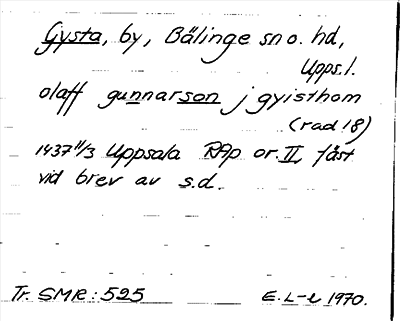 Gysta, by, Bälinge sn o. hd,
Upps. l.
olaff gunnarson j gyisthom
(rad 18)
1437 11/3 Uppsala RAp or. II, fäst
vid brev av s.d.
Tr. SMR: 525 E. L-l 1970.